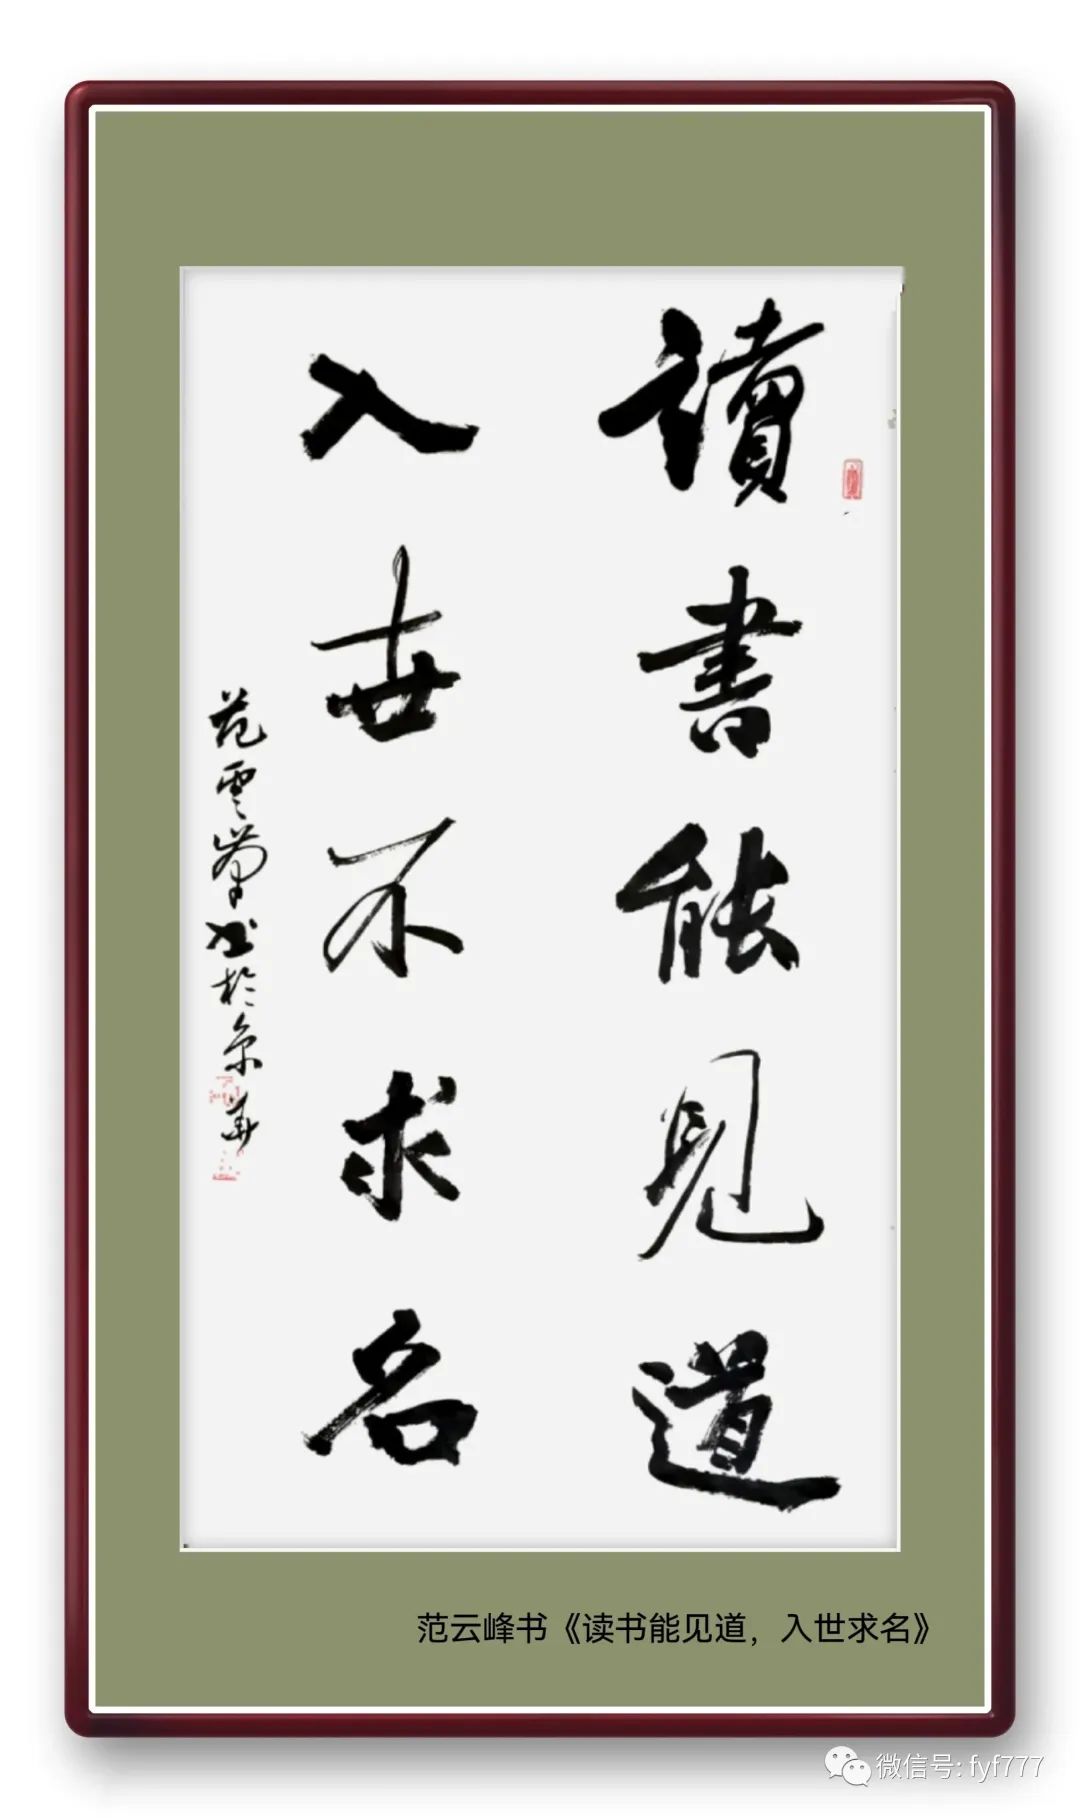 讀書能見道
入世不求名
范雲峯书於京華
范云峰书《读书能见道，入世求名》
微信号: fyf777